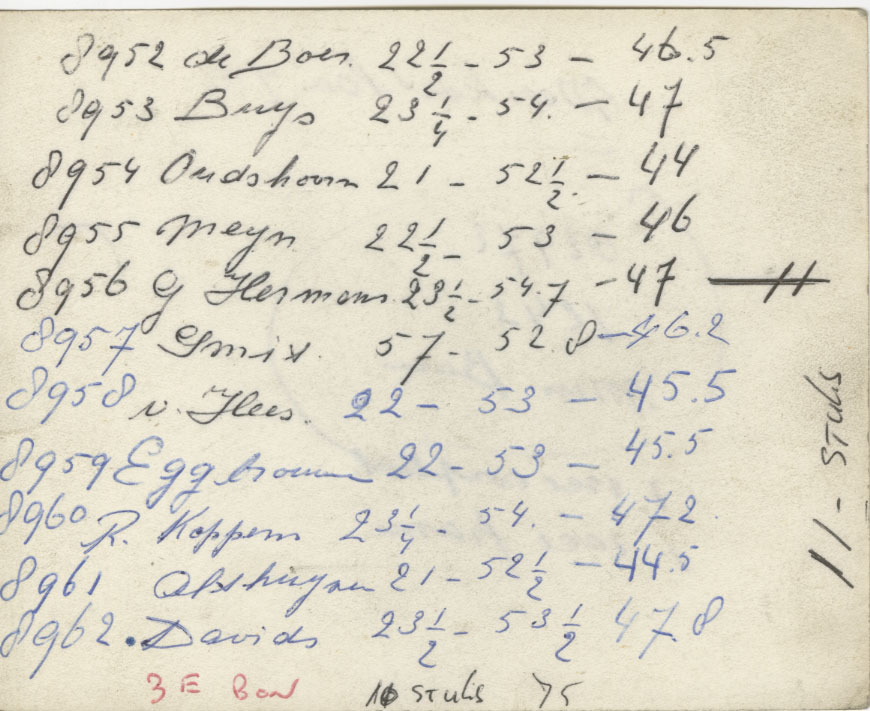 8952 de Boer 22 1/2 - 53 - 46.5
8953 Buys 23 1/4 - 54. - 47
8954 Oudshoorn 21 - 52 1/2 - 44
8955 Meyn 22 1/2 - 53 - 46
8956 G Hermans 23 1/2 - 54.7 - 47 — 11
8957 Smix. 57 - 52.8 - 46.2
8958 v. Hees. 22 - 53 - 45.5
8959 22 - 53 - 45.5
8960 R. Koppens 23 1/4 - 54. - 47.2
8961 21 - 52 1/2 - 44.5
8962. Davids 23 1/2 - 53 1/2 47.8
3E Bon stuks 75
11 - stuks